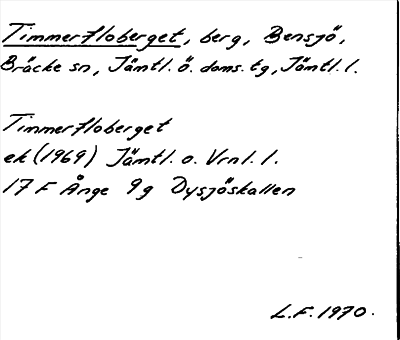 Timmerfloberget, berg, Bensjö,
Bräcke sn, Jämtl. ö. doms. tg, Jämtl. l.
Timmerfloberget
ek (1969) Jämtl. o. Vrnl. l.
17 F Ånge 9g Dysjöskallen
L.F. 1970.